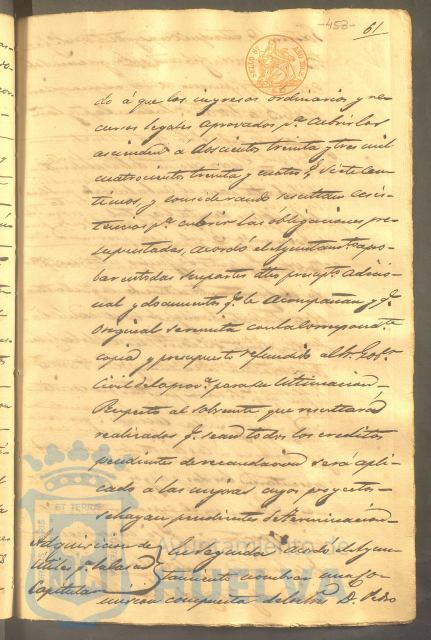 -453-
61
do á que los ingresos ordinarios y re-
cursos legales aprovados pª cubrirlos
ascienden á doscientos treinta y tres mil
cuatrocientos treinta y cuatro pˢ siete cen-
timos, y considerando resultan
pª cubrir las obligaciones pre-
supuestadas, acordó el Ayuntamᵗᵒ apro-
bar en todas sus partes dho presupᵗᵒ adicio-
nal y documentos qᵉ le acompañan y qᵉ
original se remita con la correspondᵗᵉ
copia y presupuesto refundido al Sr. Gobºʳ
Civil de la provª para su ultimacion,
Respecto al sobrante que resultará
realizados qᵉ sean todos los creditos
pendientes de recaudacion será apli-
cado á las mejoras cuyos proyectos
se hayan pendientes de terminacion
Adquisicion de
utiles pª la sala
Capitular
En seguida acordó el Ayun-
tamiento nombrar una co-
mision compuesta de los Sres D. Pedro
ET TERRÆ
Ayuntamiento de
HUELVA